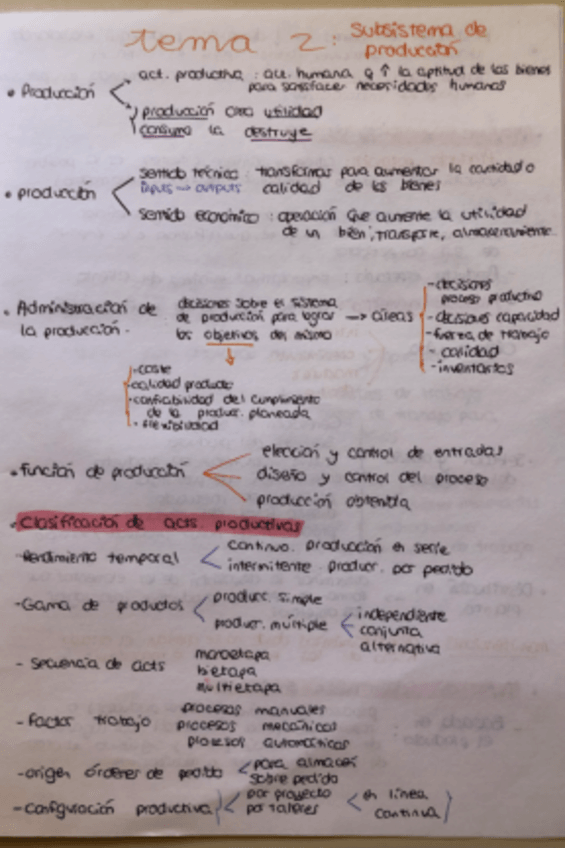 tema 2: subsistema de producción
• Producción
act. productiva : act. humana q ↑ la aptitud de los bienes
para satisfacer necesidades humanas
producción crea utilidad
consumo la destruye
• producción
sentido técnico : transformas para aumentar la cantidad o
inputs → outputs calidad de los bienes
sentido económico : operación que aumente la utilidad
de un bien, transporte, almacenamiento.
• Administración de
la producción -
decisiones sobre el sistema
de producción para lograr → áreas
los objetivos del mismo
- decisiones
proceso productivo
- decisiones capacidad
- fuerza de trabajo
- calidad
- inventarios
- coste
- calidad producto
- confiabilidad del cumplimiento
de la produc. planeada
- flexibilidad
• función de producción
elección y control de entradas
diseño y control del proceso
producción obtenida
• Clasificación de acts. productivas
- Rendimiento temporal
continuo. producción en serie
intermitente produc. por pedido
- Gama de productos
produc. simple
produc. múltiple
independiente
conjunta
alternativa
- Secuencia de acts
monoetapa
bietapa
multietapa
- Factor trabajo
procesos manuales
procesos mecánicos
procesos automáticos
- origen órdenes de pedido
para almacén
sobre pedido
- configuración productiva
por proyecto
por talleres
en línea
continua